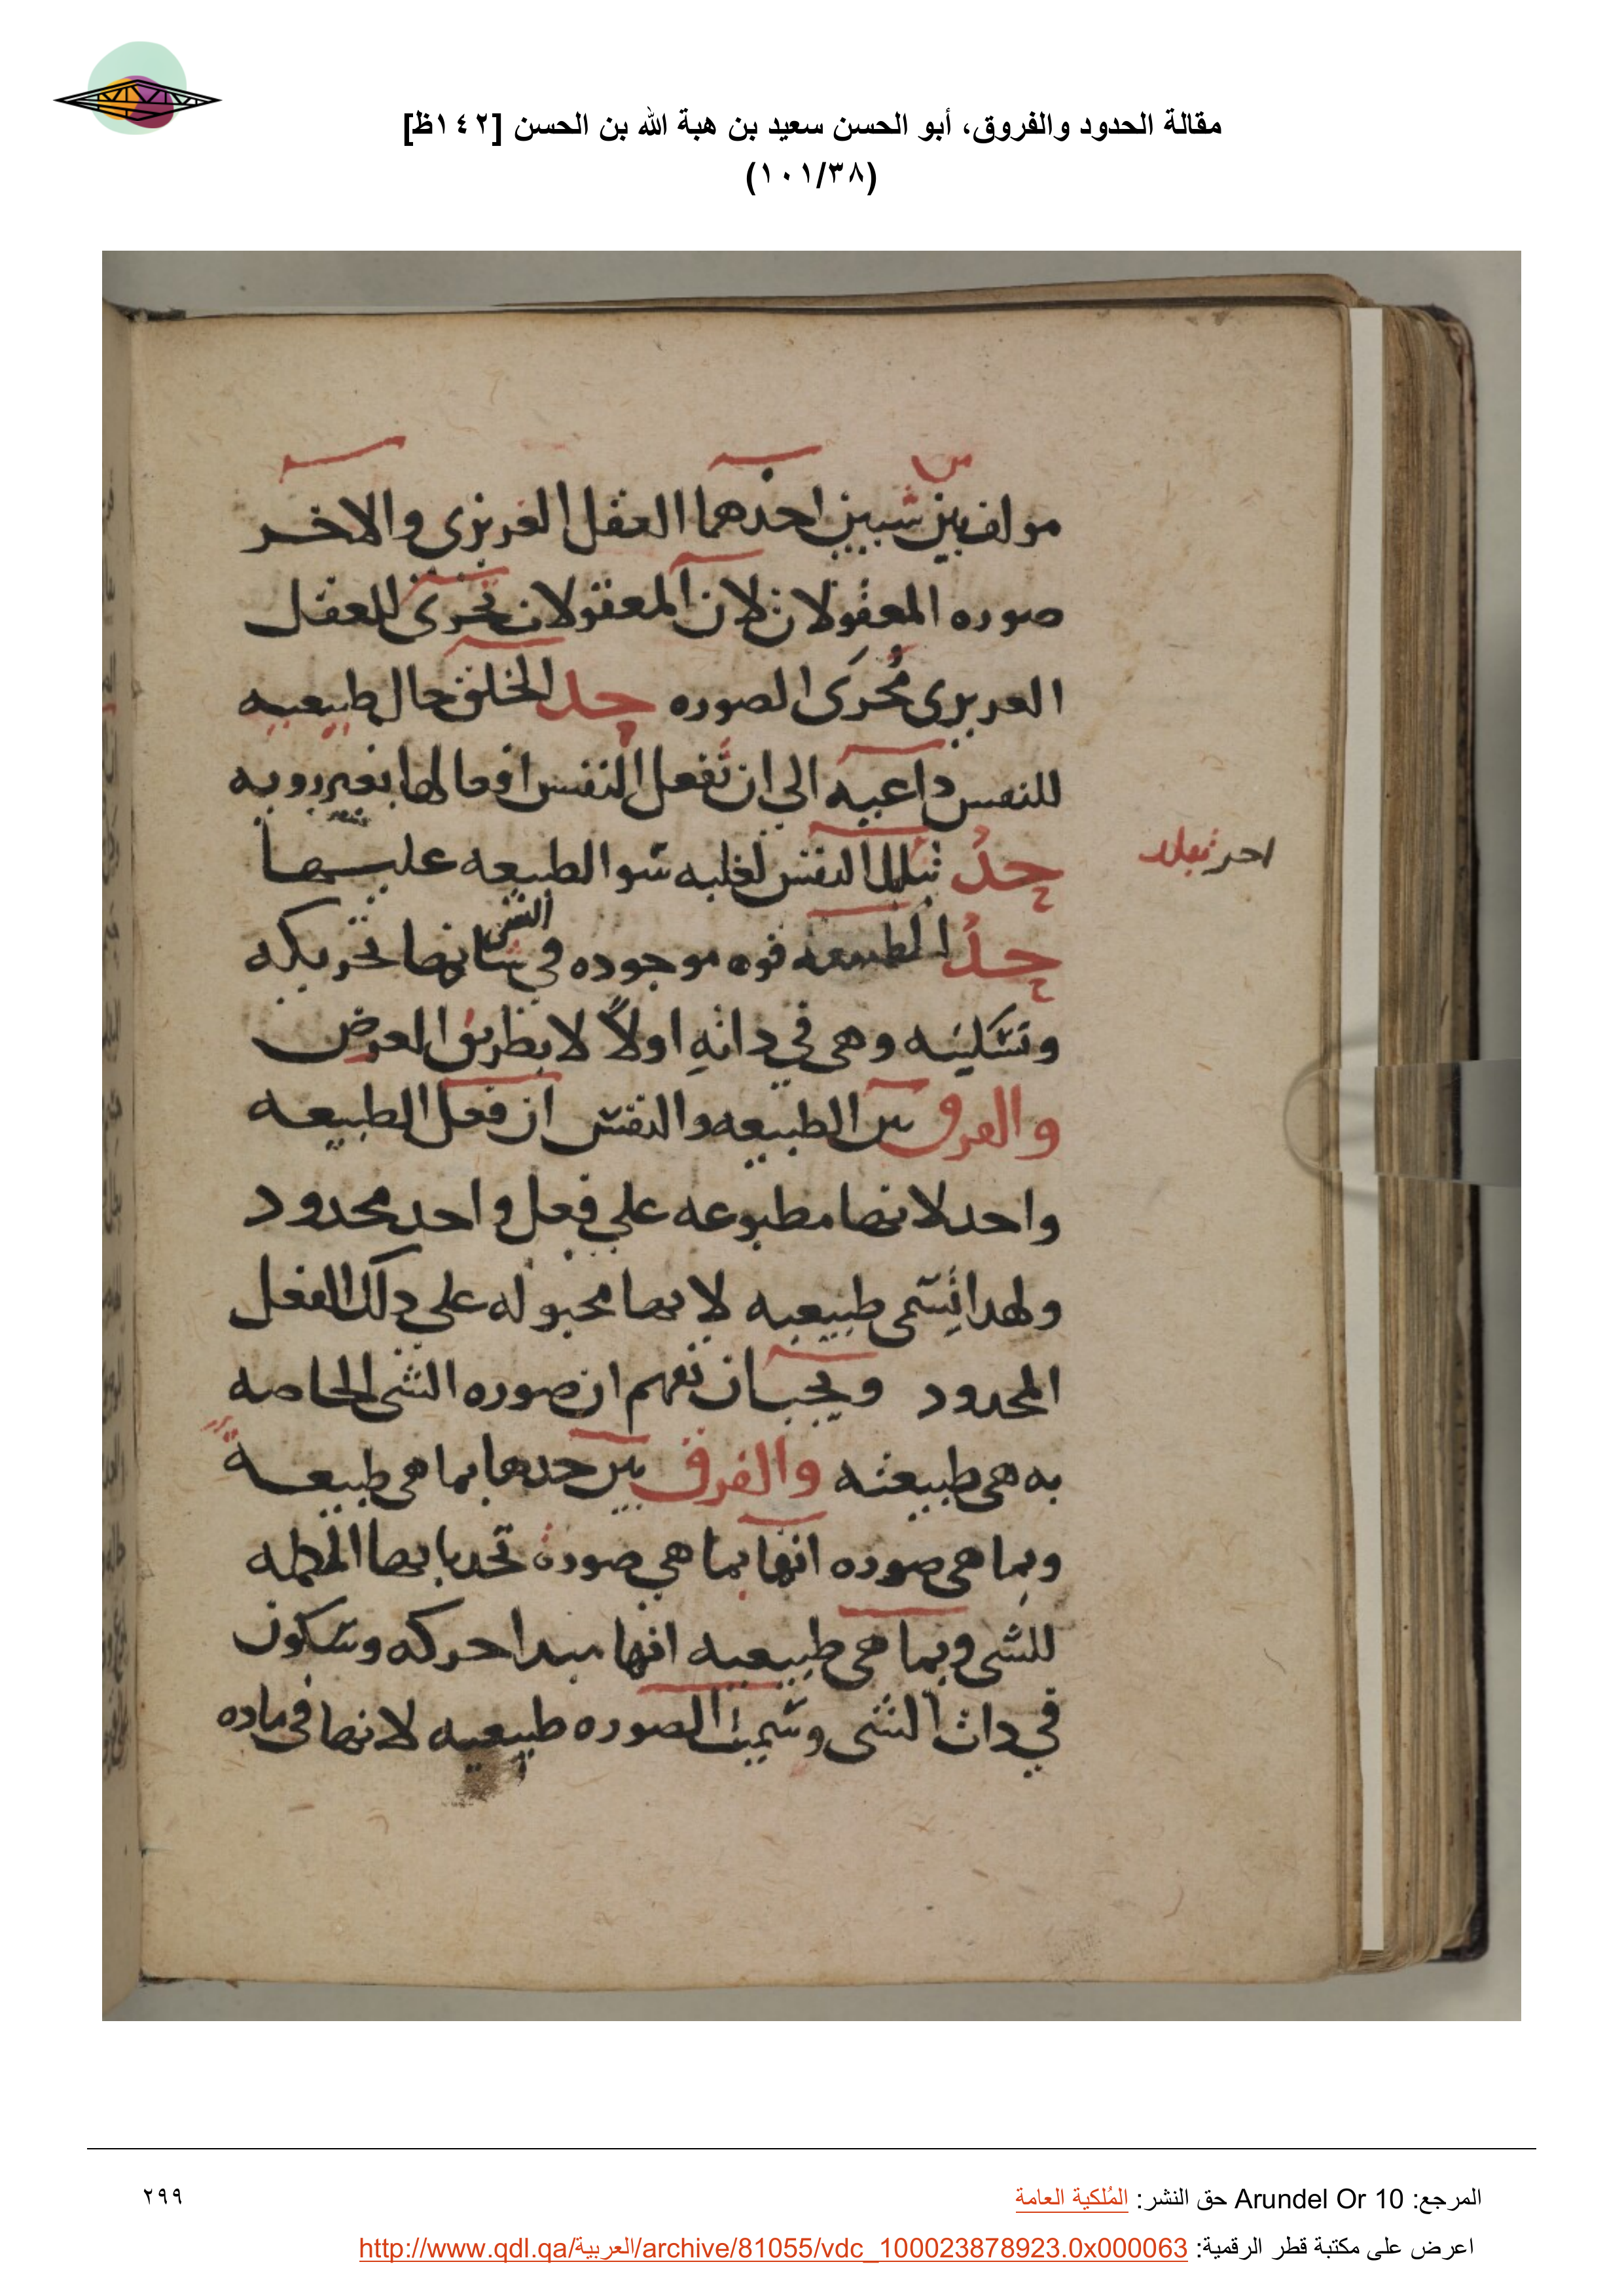 مقالة الحدود والفروق، أبو الحسن سعيد بن هبة الله بن الحسن [١٤٢ظ]
(١٠١/٣٨)
من
مولف بين شيين احدهما العقل الغريزى والاخر
صوره المعقولات لان المعقولات تجرى للعقل
الغريزى مُجرَى الصوره حد الخلق حال طبيعيه
للنفس داعيه الى ان تفعل النفس افعالها بغير رويه
حدُّ النفس لغلبه سو الطبيعه عليها
حدُّ الطبيعه قوه موجوده في الشى شانها تحريكه
وتسكينه وهى في ذاتهِ اولاً لا بطريق العرض
والفرق بين الطبيعه والنفس ان فعل الطبيعه
واحد لانها مطبوعه علي فعل واحد محدود
ولهذا تُسَمى طبيعيه لانها مجبوله علي ذلك الفعل
المحدود ويجب ان تفهم ان صوره الشى الخاصه
به هى طبيعته والفرق بين حدها بما هى طبيعة
وبما هى صوره انها بما هي صورة تحد بانها
للشى وبما هى طبيعيه انها مبدا حركه وسكون
في ذات الشى وسميت الصوره طبيعيه لانها في ماده
المرجع: Arundel Or 10 حق النشر: المُلكية العامة
٢٩٩
اعرض على مكتبة قطر الرقمية: http://www.qdl.qa/العربية/archive/81055/vdc_100023878923.0x000063